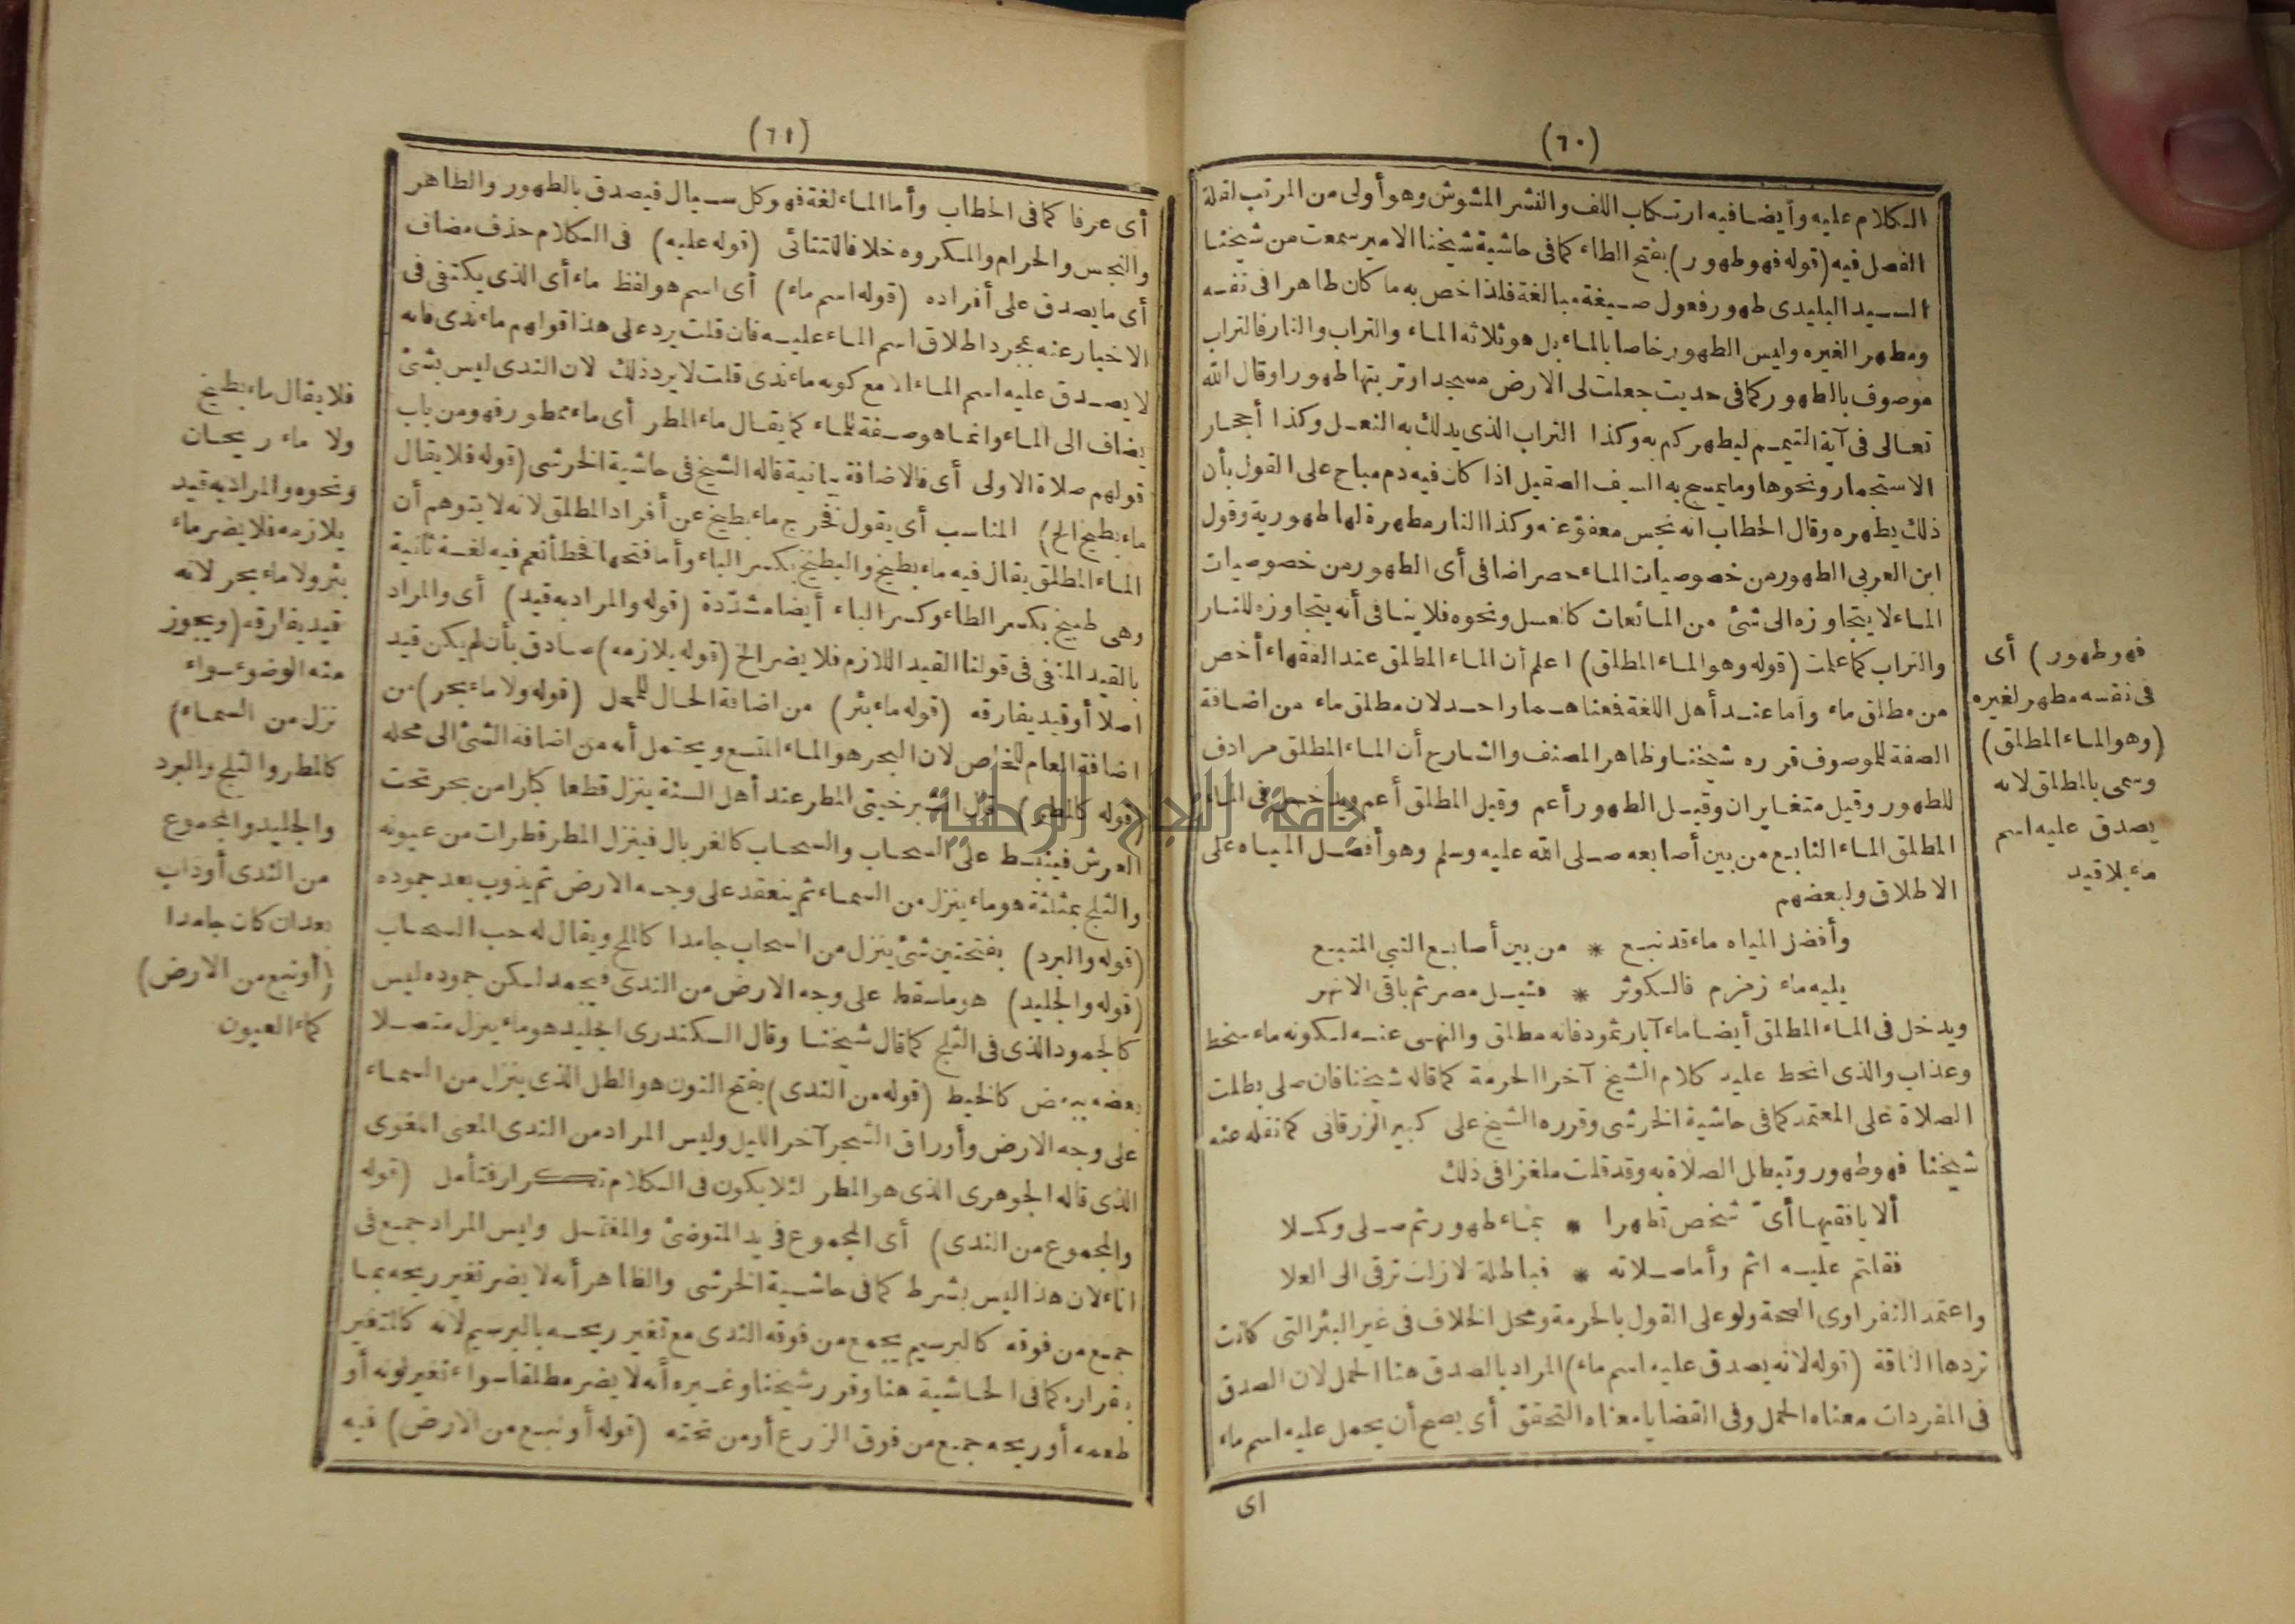 (٦٠)
الكلام عليه وأيضا فيه ارتكاب اللف والنشر المشوش وهو أولى من المرتب لقلة
الفصل فيه (قوله فهو طهور) بفتح الطاء كما في حاشية شيخنا الامير سمعت من شيخنا
السيد البليدى طهور فعول صيغة مبالغة فلذا خص به ما كان طاهرا في نفسه
ومطهرا لغيره وليس الطهور خاصا بالماء بل هو ثلاثة الماء والتراب والنار فالتراب
موصوف بالطهور كما في حديث جعلت لى الارض مسجدا وتربتها طهورا وقال الله
تعالى في آية التيمم ليطهركم به وكذا التراب الذى يدلك به النعل وكذا أحجار
الاستجمار ونحوها وما يمسح به السيف الصقيل اذا كان فيه دم مباح على القول بأن
ذلك يطهره وقال الحطاب انه نجس معفو عنه وكذا النار مطهرة لها طهورية وقول
ابن العربى الطهور من خصوصيات الماء حصر اضافى أى الطهور من خصوصيات
الماء لا يتجاوزه الى شئ من المائعات كالعسل ونحوه فلا ينافى أنه يتجاوزه للنار
والتراب كما علمت (قوله وهو الماء المطلق) اعلم أن الماء المطلق عند الفقهاء أخص
من مطلق ماء وأما عند أهل اللغة فمعناهما واحد لان مطلق ماء من اضافة
الصفة للموصوف قرره شيخنا وظاهر المصنف والشارح أن الماء المطلق مرادف
للطهور وقيل متغايران وقيل الطهور أعم وقيل المطلق أعم ويدخل فى الماء
المطلق الماء النابع من بين أصابعه صلى الله عليه وسلم وهو أفضل المياه على
الاطلاق ولبعضهم
وأفضل المياه ماء قد نبع * من بين أصابع النبي المتبع
يليه ماء زمزم فالكوثر * فنيل مصر ثم باقى الانهر
ويدخل فى الماء المطلق أيضا ماء آبار ثمود فانه مطلق والنهى عنه لكونه ماء سخط
وعذاب والذى انحط عليه كلام الشيخ آخرا الحرمة كما قاله شيخنا فان صلى بطلت
الصلاة على المعتمد كما في حاشية الخرشى وقرره الشيخ على كبير الزرقانى كما نقله عنه
شيخنا فهو طهور وتبطل الصلاة به وقد قلت ملغزا فى ذلك
ألا يا فقيها أىّ شخص تطهرا * بماء طهور ثم صلى وكملا
فقلتم عليه اثم وأما صلاته * فباطلة لازلت ترقى الى العلا
واعتمد النفراوى الصحة ولو على القول بالحرمة ومحل الخلاف فى غير البئر التى كانت
تردها الناقة (قوله لانه يصدق عليه اسم ماء) المراد بالصدق هنا الحمل لان الصدق
فى المفردات معناه الحمل وفى القضايا معناه التحقق أى يصح أن يحمل عليه اسم ماء
اى
فهو طهور) أى
فى نفسه مطهر لغيره
(وهو الماء المطلق)
وسمى بالمطلق لانه
يصدق عليه اسم
ماء بلا قيد
(٦١)
أى عرفا كما فى الحطاب وأما الماء لغة فهو كل سيال فيصدق بالطهور والطاهر
والنجس والحرام والمكروه خلافا للتتائى (قوله عليه) فى الكلام حذف مضاف
أى ما يصدق على أفراده (قوله اسم ماء) أى اسم هو لفظ ماء أى الذى يكتفى فى
الاخبار عنه بمجرد اطلاق اسم الماء عليه فان قلت يرد على هذا قولهم ماء ندى فانه
لا يصدق عليه اسم الماء الا مع كونه ماء ندى قلت لا يرد ذلك لان الندى ليس بشئ
يضاف الى الماء وانما هو صفة للماء كما يقال ماء المطر أى ماء ممطور فهو من باب
قولهم صلاة الاولى أى فالاضافة بيانية قاله الشيخ فى حاشية الخرشى (قوله فلا يقال
ماء بطيخ الخ) المناسب أى يقول فخرج ماء بطيخ عن أفراد المطلق لانه لا يتوهم أن
الماء المطلق يقال فيه ماء بطيخ والبطيخ بكسر الباء وأما فتحها فخطأ نعم فيه لغة ثانية
وهى طبيخ بكسر الطاء وكسر الباء أيضا مشددة (قوله والمراد به قيد) أى والمراد
بالقيد المنفى فى قولنا القيد اللازم فلا يضر الخ (قوله يلازمه) صادق بأن لم يكن قيد
اصلا أو قيد يفارقه (قوله ماء بئر) من اضافة الحال للمحل (قوله ولا ماء بحر) من
اضافة العام للخاص لان البحر هو الماء المتسع ويحتمل أنه من اضافة الشئ الى محله
(قوله كالمطر) قال الشبرخيتى المطر عند أهل السنة ينزل قطعا كبارا من بحر تحت
العرش فينبسط على السحاب والسحاب كالغربال فينزل المطر قطرات من عيونه
والثلج بمثلثة هو ماء ينزل من السماء ثم ينعقد على وجه الارض ثم يذوب بعد جموده
(قوله والبرد) بفتحتين شئ ينزل من السحاب جامدا كالملح ويقال له حب السحاب
(قوله والجليد) هو ما سقط على وجه الارض من الندى فيجمد لكن جموده ليس
كالجمود الذى فى الثلج كما قال شيخنا وقال السكندرى الجليد هو ماء ينزل متصلا
بعضه ببعض كالخيط (قوله من الندى) بفتح النون هو الطل الذى ينزل من السماء
على وجه الارض وأوراق الشجر آخر الليل وليس المراد من الندى المعنى اللغوى
الذى قاله الجوهرى الذى هو المطر لئلا يكون فى الكلام تكرار فتأمل (قوله
والمجموع من الندى) أى المجموع فى يد المتوضئ والمغتسل وليس المراد جمع فى
اناء لان هذا ليس بشرط كما فى حاشية الخرشى والظاهر أنه لا يضر تغير ريحه بما
جمع من فوقه كالبرسيم يجمع من فوقه الندى مع تغير ريحه بالبرسيم لانه كالمتغير
بقراره كما فى الحاشية هنا وقرر شيخنا وغيره أنه لا يضر مطلقا سواء تغير لونه أو
طعمه أو ريحه جمع من فوق الزرع أو من تحته (قوله أو نبع من الارض) فيه
فلا يقال ماء بطيخ
ولا ماء ريحان
ونحوه والمراد به قيد
يلازمه فلا يضر ماء
بئر ولا ماء بحر لانه
قيد يفارقه (ويجوز
منه الوضوء سواء
نزل من السماء)
كالمطر والثلج والبرد
والجليد والمجموع
من الندى أو ذاب
بعد ان كان جامدا
(أو نبع من الارض)
كماء العيون
جامعة النجاح الوطنية